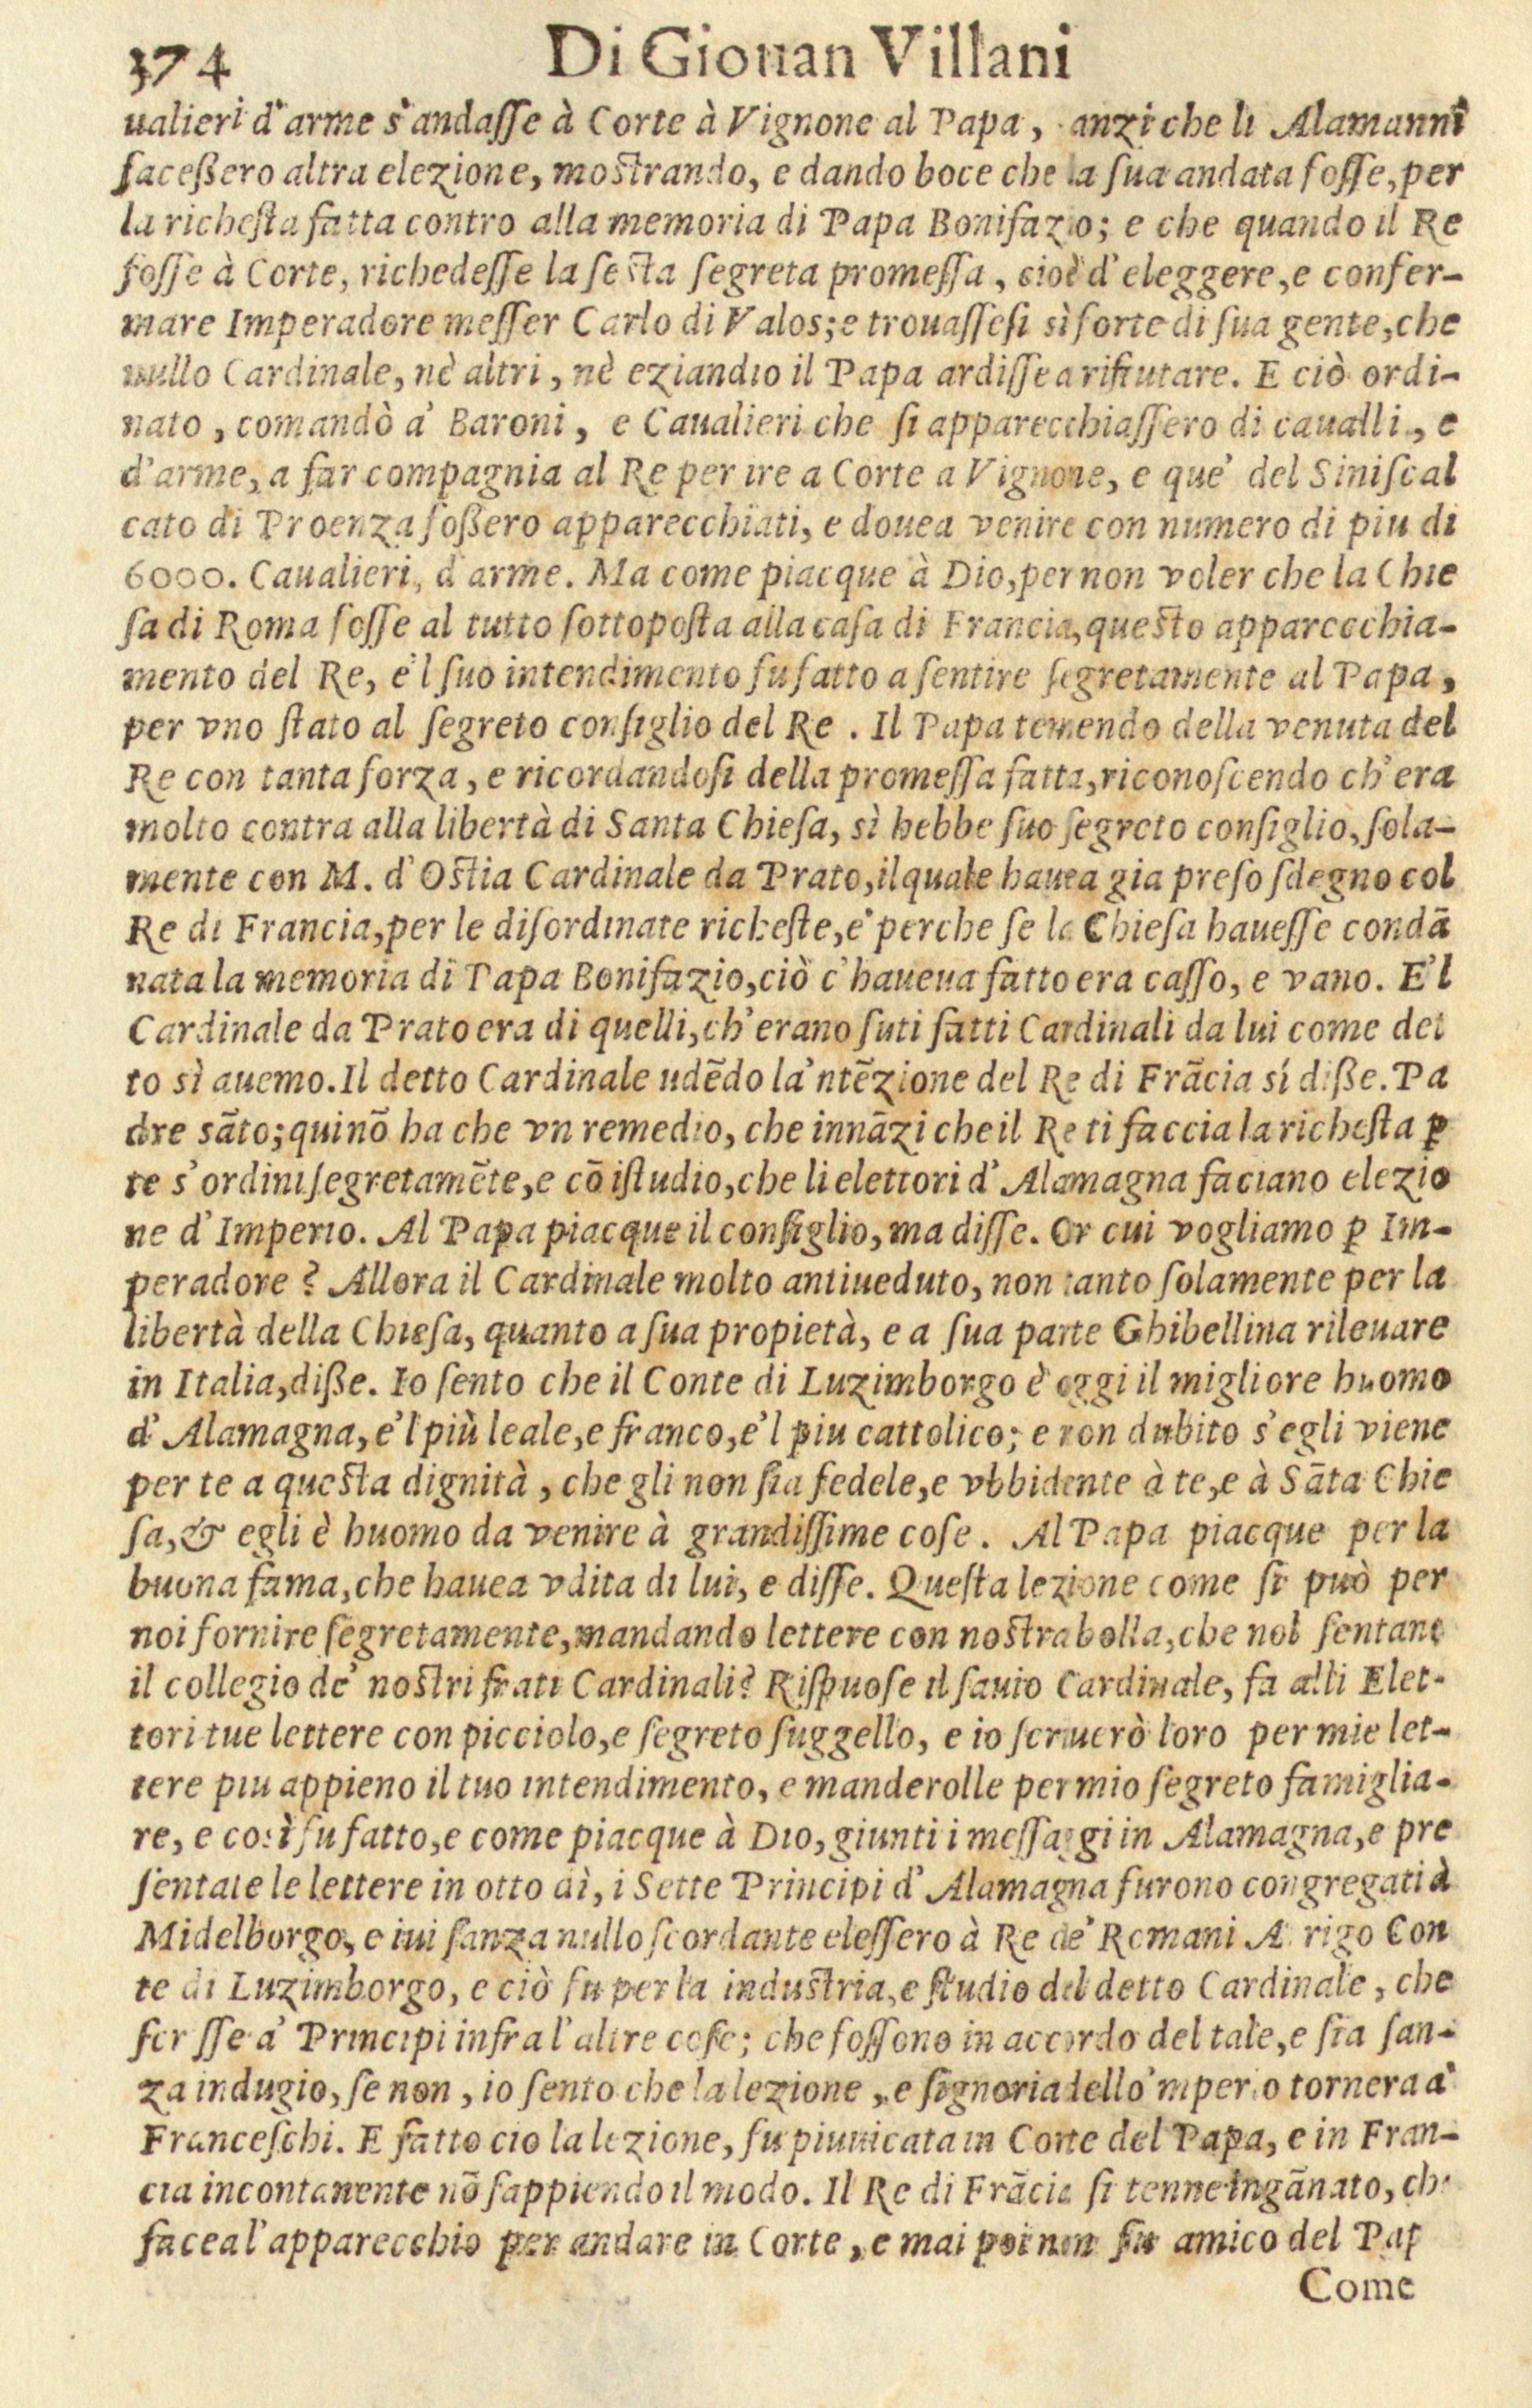 374 Di Giouan Villani
ualieri d'arme s'andasse à Corte à Vignone al Papa, anzi che li Alamanni
facessero altra elezione, mostrando, e dando boce che la sua andata fosse, per
la richesta fatta contro alla memoria di Papa Bonifazio; e che quando il Re
fosse à Corte, richedesse la sesta segreta promessa, cioè d'eleggere, e confer-
mare Imperadore messer Carlo di Valos; e trouassesi sì forte di sua gente, che
nullo Cardinale, nè altri, nè eziandio il Papa ardisse a rifiutare. E ciò ordi-
nato, comandò a' Baroni, e Caualieri che si apparecchiassero di caualli, e
d'arme, a far compagnia al Re per ire a Corte a Vignone, e que' del Siniscal
cato di Proenza fossero apparecchiati, e douea venire con numero di piu di
6000. Caualieri, d'arme. Ma come piacque à Dio, per non voler che la Chie
sa di Roma fosse al tutto sottoposta alla casa di Francia, questo apparecchia-
mento del Re, e'l suo intendimento fu fatto a sentire segretamente al Papa,
per vno stato al segreto consiglio del Re. Il Papa temendo della venuta del
Re con tanta forza, e ricordandosi della promessa fatta, riconoscendo ch'era
molto contra alla libertà di Santa Chiesa, sì hebbe suo segreto consiglio, sola-
mente con M. d'Ostia Cardinale da Prato, il quale hauea gia preso sdegno col
Re di Francia, per le disordinate richeste, e perche se la Chiesa hauesse condã
nata la memoria di Papa Bonifazio, ciò c'haueua fatto era casso, e vano. E'l
Cardinale da Prato era di quelli, ch'erano suti fatti Cardinali da lui come det
to sì auemo. Il detto Cardinale udẽdo la'ntẽzione del Re di Frãcia sí disse. Pa
dre sãto; qui nõ ha che vn remedio, che innãzi che il Re ti faccia la richesta ꝑ
te s'ordini segretamẽte, e cõ istudio, che li elettori d'Alamagna faciano elezio
ne d'Imperio. Al Papa piacque il consiglio, ma disse. Or cui vogliamo ꝑ Im-
peradore? Allora il Cardinale molto antiueduto, non tanto solamente per la
libertà della Chiesa, quanto a sua propietà, e a sua parte Ghibellina rileuare
in Italia, disse. Io sento che il Conte di Luzimborgo è oggi il migliore huomo
d'Alamagna, e'l più leale, e franco, e'l piu cattolico; e non dubito s'egli viene
per te a questa dignità, che gli non sia fedele, e vbbidente à te, e à Sãta Chie
sa, & egli è huomo da venire à grandissime cose. Al Papa piacque per la
buona fama, che hauea vdita di lui, e disse. Questa lezione come si può per
noi fornire segretamente, mandando lettere con nostra bolla, che nol sentano
il collegio de' nostri frati Cardinali? Rispuose il sauio Cardinale, fa alli Elet-
tori tue lettere con picciolo, e segreto suggello, e io scriuerò loro per mie let-
tere piu appieno il tuo intendimento, e manderolle per mio segreto famiglia-
re, e così fu fatto, e come piacque à Dio, giunti i messaggi in Alamagna, e pre
sentate le lettere in otto dì, i Sette Principi d'Alamagna furono congregati à
Midelborgo, e iui sanza nullo scordante elessero à Re de' Romani Arrigo Con
te di Luzimborgo, e ciò fu per la industria, e studio del detto Cardinale, che
scrisse a' Principi infra l'altre cose; che fossono in accordo del tale, e sia san-
za indugio, se non, io sento che la lezione, e signoria dello'mperio tornera a'
Franceschi. E fatto cio la lezione, fu piuuicata in Corte del Papa, e in Fran-
cia incontanente nõ sappiendo il modo. Il Re di Frãcia si tenne ingãnato, che
facea l'apparecchio per andare in Corte, e mai poi non fu amico del Pap
Come